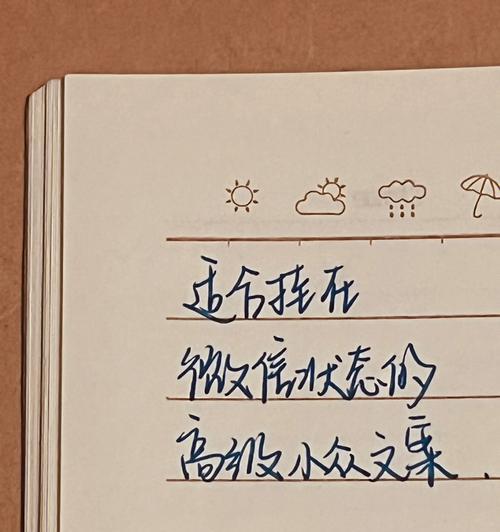 适合挂在
微信状态的
高级小众文案.